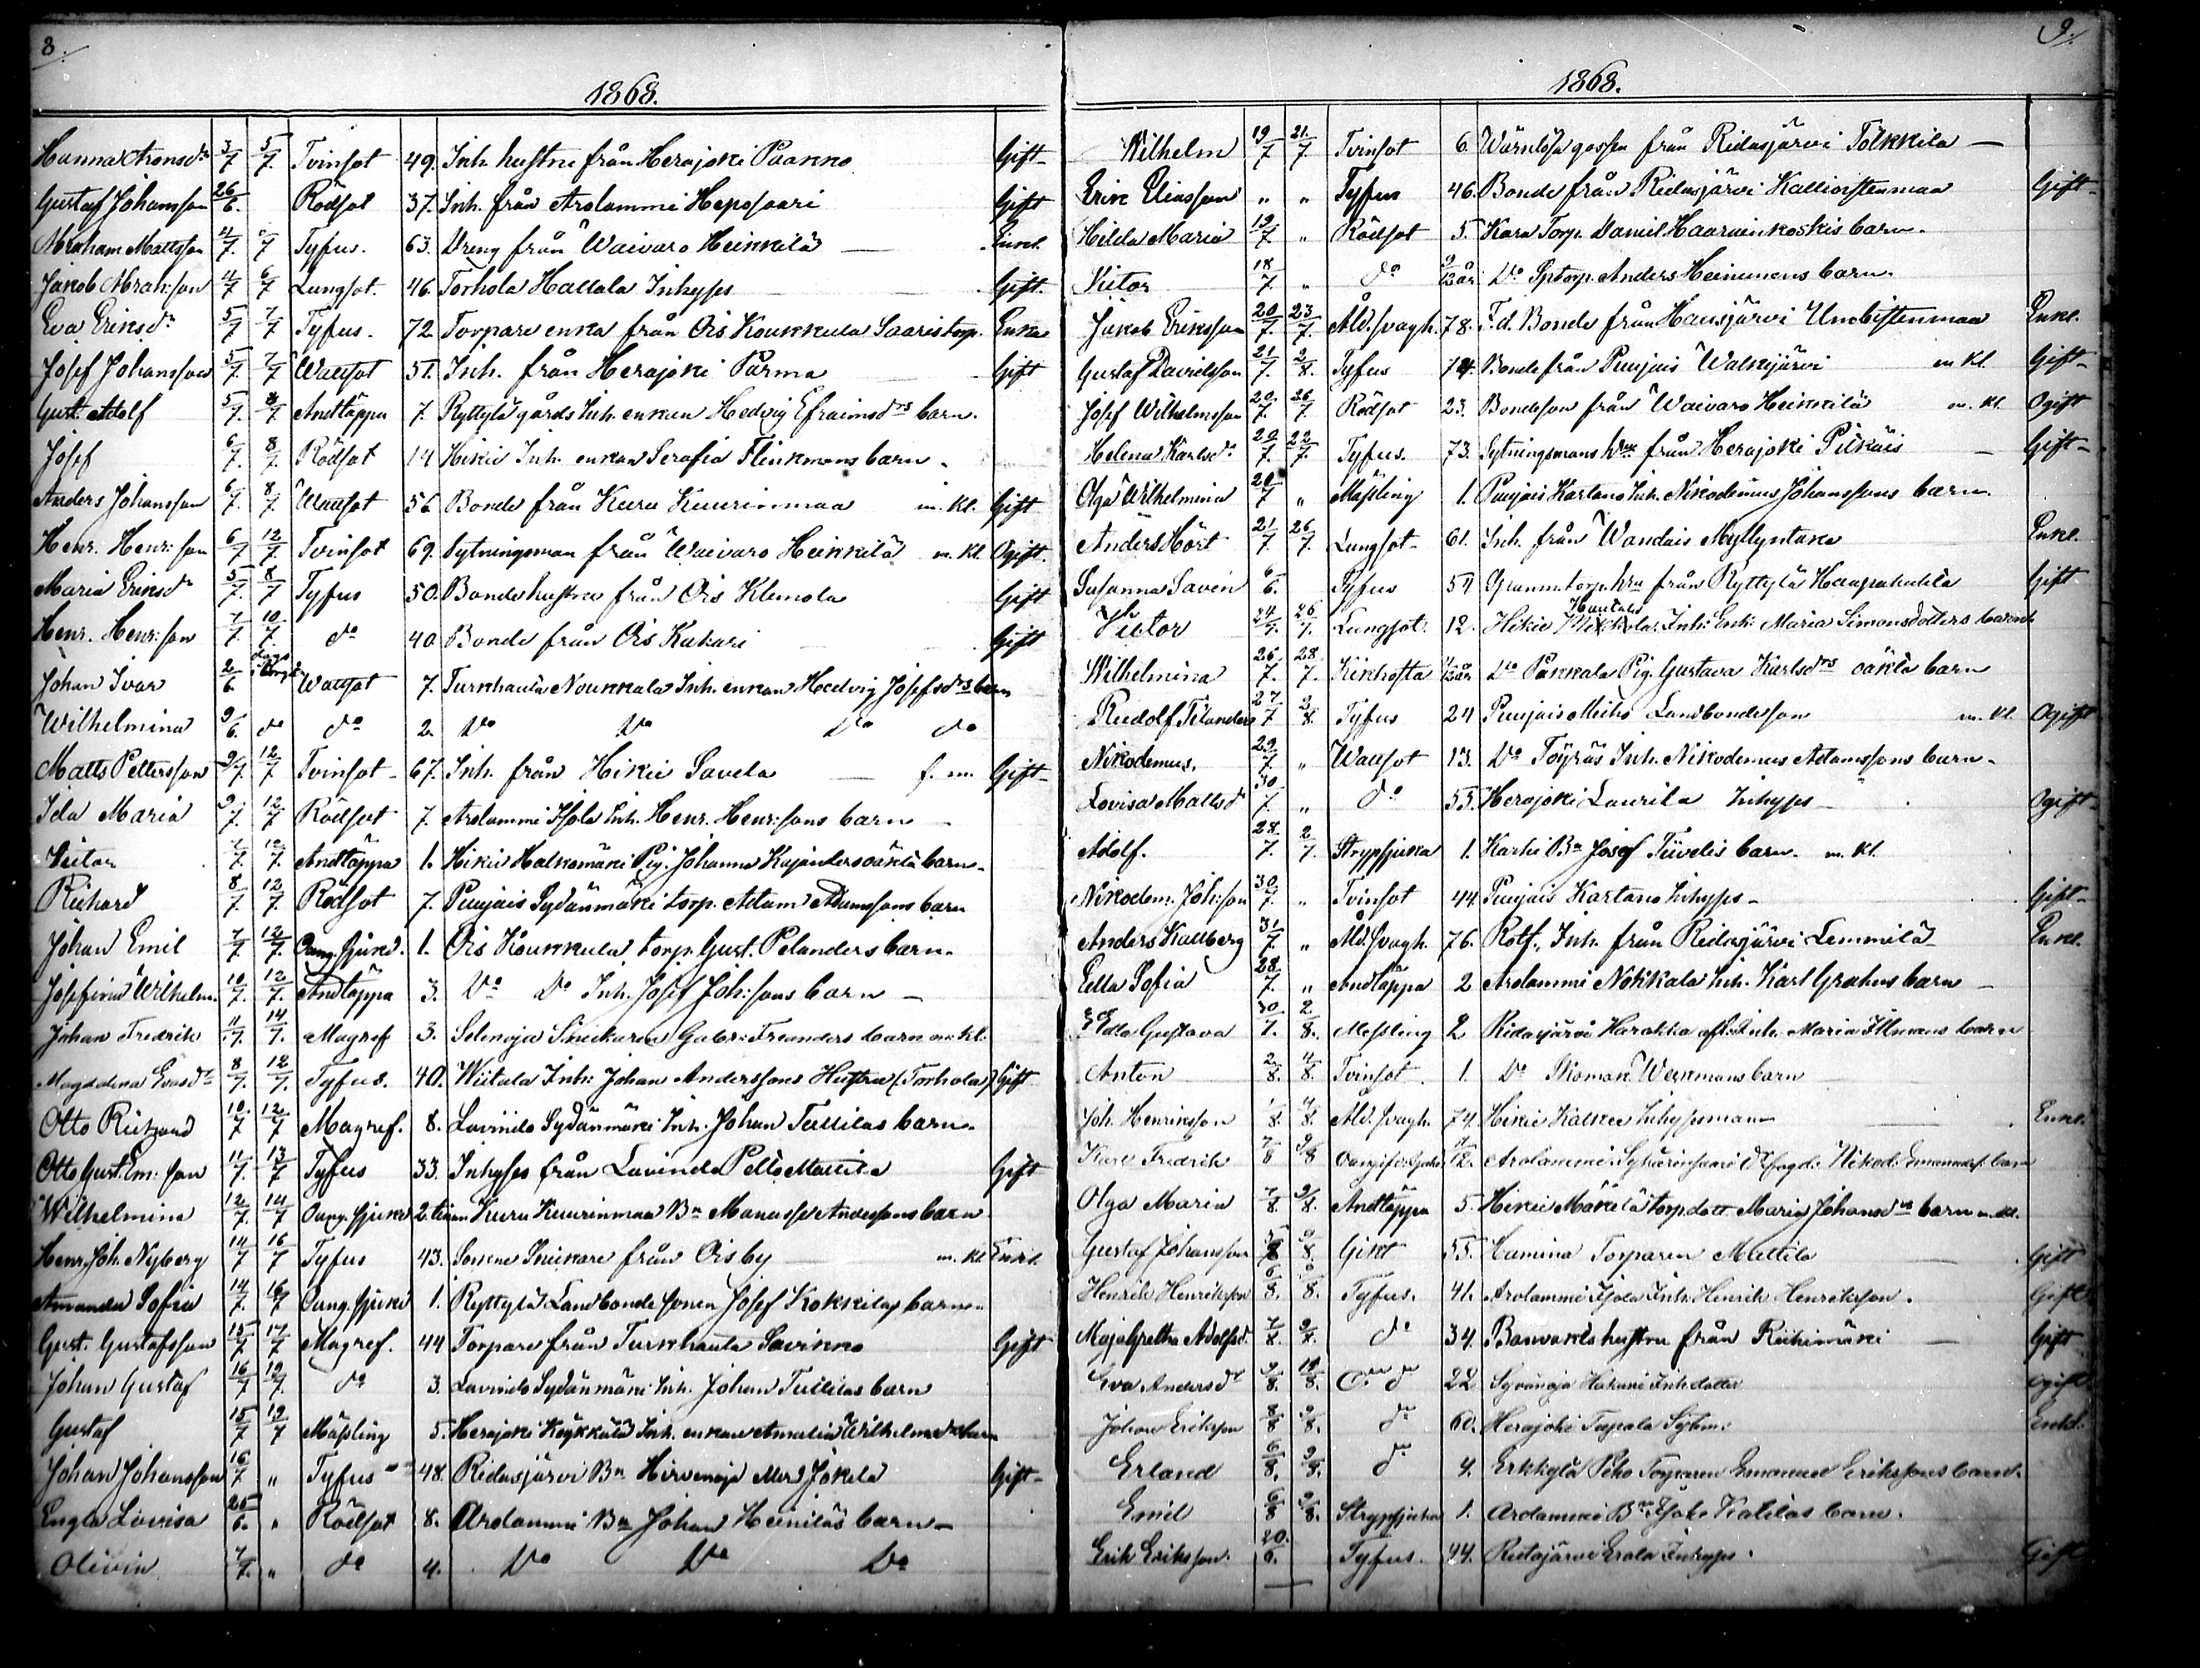 8.
1868.
Hanna Aronsdr 3/7 5/7. Tvinsot 49. Inh. hustru från Herajoki Paanno Gift
Gustaf Johansson 26/6. Rödsot 37. Inh. från Arolammi Heposaari Gift
Abraham Mattsson 4/7. /7 Tyfus. 63. Dreng från Waivaro Heikkilä Enkl.
Jakob Abrah:son 4/7 6/7 Lungsot. 46. Torhola Hallala Inhyses Gift.
Eva Eriksdr 5/7 7/7 Tyfus. 72 Torpare enka från Ois Koukkula Saaris torp. Enka
Josef Johansson 5/7. 7/7 Wattsot 51. Inh. från Herajoki Parma Gift
Gust. Adolf 5/7. 8/7 Andtäppa 7. Ryttylä gårds Inh. enkan Hedvig Efraimsdrs barn.
Josef 6/7. 8/7. Rödsot 14 Hikiä Inh. enkan Serafia Flinkmans barn.
Anders Johansson 6/7. 8/7. Wattsot 56 Bonde från Kuru Kuurinmaa m. kl. Gift
Henr. Henr:son 6/7 12/7. Tvinsot 69. Sytningsman från Waivaro Heikkilä m. kl. Ogift.
Maria Eriksdr 5/7. 8/7 Tyfus 50. Bondehustru från Ois Klemola Gift
Henr. Henr:son 7/7. 10/7. do 40 Bonde från Ois Kukari Gift
Johan Ivar 2/6. Wattsot 7. Turkhauta Noukkala Inh. enkan Hedvig Josefsdrs barn
Wilhelmina 9/6. do do 2. Do Do Do do
Matts Pettersson 9/7. 12/7 Tvinsot 67. Inh. från Hikiä Savela f. m. Gift
Ida Maria 9/7. 12/7 Rödsot 7. Arolammi Isola Inh. Henr. Henr:sons barn
Viktor 7/7. 12/7. Andtäppa 1. Hikiä Halkomäki Pig. Johanna Kajanders oäkta barn
Richard 8/7. 12/7. Rödsot 7. Puujais Sydänmäki torp. Adam Adamssons barn
Johan Emil 7/7. 12/7. Oang. sjukd. 1. Ois Koukkula torp. Gust. Pelanders barn.
Josefina Wilhelm. 10/7. 12/7. Andtäppa 3. Do Do Inh. Josef Joh:sons barn
Johan Fredrik 11/7. 14/7. Magref 3. Selenoja Snickaren Gabr: Freanders barn m kl.
Magdalena Evasdr 8/7. 12/7. Tyfus. 40. Wiitala Inh: Johan Anderssons Hustru (Torhola) Gift
Otto Rikhard 10/7 12/7 Magref. 8. Lavinto Sydänmäki Inh. Johan Tullilas barn.
Otto Gust. Em:son 11/7. 13/7 Tyfus 33. Inhyses från Lavinto Pelto Mattila Gift
Wilhelmina 12/7. 14/7 Oang. sjukd 2. timm Kuru Kuurinmaa Bn Manasse Anderssons barn
Henr. Joh. Nyberg 14/7 16/7 Tyfus 43. Sockne Snickare från Oisby m. kl. Enkl.
Amanda Sofia 14/7. 16/7 Oang. sjukd 1. Ryttylä Landbonde sonen Josef Kokkilas barn
Gust. Gustafsson 15/7 17/7 Magref. 44 Torpare från Turkhauta Savikko Gift
Johan Gustaf 16/7 19/7. do 3. Lavinto Sydänmäki Inh. Johan Tullilas barn
Gustaf 15/7 19/7 Mässling 5. Herajoki Keykkälä Inh. enkan Amalia Wilhelmsdrs barn
Johan Johansson 16/7 " Tyfus 48. Ridasjärvi Bn Hirvenoja Med Jokela Gift
Engla Lovisa 25/6. " Rödsot 8. Arolammi Bn Johan Heiniläs barn
Olivia 7/7. " do 4. Do Do Do
9.
1868.
Wilhelm 19/7 21/7. Tvinsot 6. Wärnlösa gossen från Ridasjärvi Tolkkila
Erik Eliasson " " Tyfus 46. Bonde från Ridasjärvi Kallioistenmaa Gift
Hilda Maria 19/7. " Rödsot 5. Kara Torp. Daniel Haarainkoskis barn.
Victor 18/7 " do 9/12 år Do Sptorp. Anders Heinunens barn.
Jakob Eriksson 20/7. 23/7. Åld. svagh. 78. F.d. Bonde från Hausjärvi Umbistenmaa Enkl.
Gustaf Davidsson 21/7. 2/8. Tyfus 74. Bonde från Puujais Walkjärvi m kl. Gift
Josef Wilhelmsson 20/7. 26/7 Rödsot 23. Bondeson från Waivaro Heikkilä m. kl. Ogift
Helena Karlsdr 20/7. 22/7. Tyfus. 73. Sytningsmans hru från Herajoki Pitkäis Gift
Olga Wilhelmina 20/7 " Mässling 1. Puujais Kartano Inh. Nikodemus Johanssons barn.
Anders Hört 21/7. 26/7. Lungsot 61. Inh. från Wandais Myllyntaka Enkl.
Susanna Savén 6/6. Tyfus 57 Gramm. torp. hru från Ryttylä Haapahuhta Gift
Victor 24/7. 26/7. Lungsot. 12. Hikiä Hautala Inh: Enk: Maria Simonsdotters barn
Wilhelmina 26/7. 28/7. Kikhosta /12 år Do Pakkala Pig. Gustava Karlsdrs oäkta barn
Rudolf Tilander 27/7 2/8. Tyfus 24 Puujais Landbondeson m. kl. Ogift
Nikodemus. 29/7. " Wattsot 13. Do Töyräs Inh. Nikodemus Adamssons barn
Lovisa Mattsdr 30/7 " do 55. Herajoki Laurila Inhyses Ogift
Adolf. 28/7. 2/7. Strypsjuka 1. Karhi Bn Josef Tiivelis barn. m. kl.
Nikodem. Joh:son 30/7. " Tvinsot 44 Puujais Kartano Inhyses Gift
Anders Kallberg 31/7. " Åld. svagh. 76. Rotf., Inh. från Ridasjärvi Lemmilä Enkl.
Edla Sofia 28/7. " Andtäppa 2 Arolammi Nokkala Inh. Karl Grahns barn
Edla Gustava 30/7. 2/8. Messling 2 Ridasjärvi Harakka afl. Inh. Maria Illmans barn
Anton 2/8. 4/8. Tvinsot 1. Do Skoman Werkmans barn
Joh. Henriksson 1/8. 4/8. Åld. svagh. 74. Hikiä Kalkee Inhysesman Enkl.
Karl Fredrik 7/8 9/8 Oangifv. sjukd. /12. Arolammi Nikod. Emanuelss. barn
Olga Maria 7/8. 9/8. Andtäppa 5. Hikiä Mäkelä torp. dott. Maria Johansdrs barn m. kl.
Gustaf Johansson 5/8 9/8. Gikt 55. Hamina Torparen Mattila Gift
Henrik Henriksson 6/8. 9/8. Tyfus. 41. Arolammi Isola Inh. Henrik Henriksson. Gift
Maja Gretha Adolfsd. 7/8. 9/8. do 34. Banvaktshustru från Riihimäki Gift
Eva Andersdr 9/8. 19/8. do 22. Syvänoja Hakani Inh. dotter Ogift
Johan Eriksson 8/8 9/8. do 60. Herajoki Tapala Sytm: Enkl.
Erland 6/8. 9/8. do 4. Erkkylä Peho Torparen Emanuel Erikssons barn.
Emil 6/8 9/8. Strypsjukan 1. Arolammi Bn Isako Katilas barn.
Erik Eriksson. 20/6. Tyfus. 44. Ridasjärvi Erola Inhyses. Gift